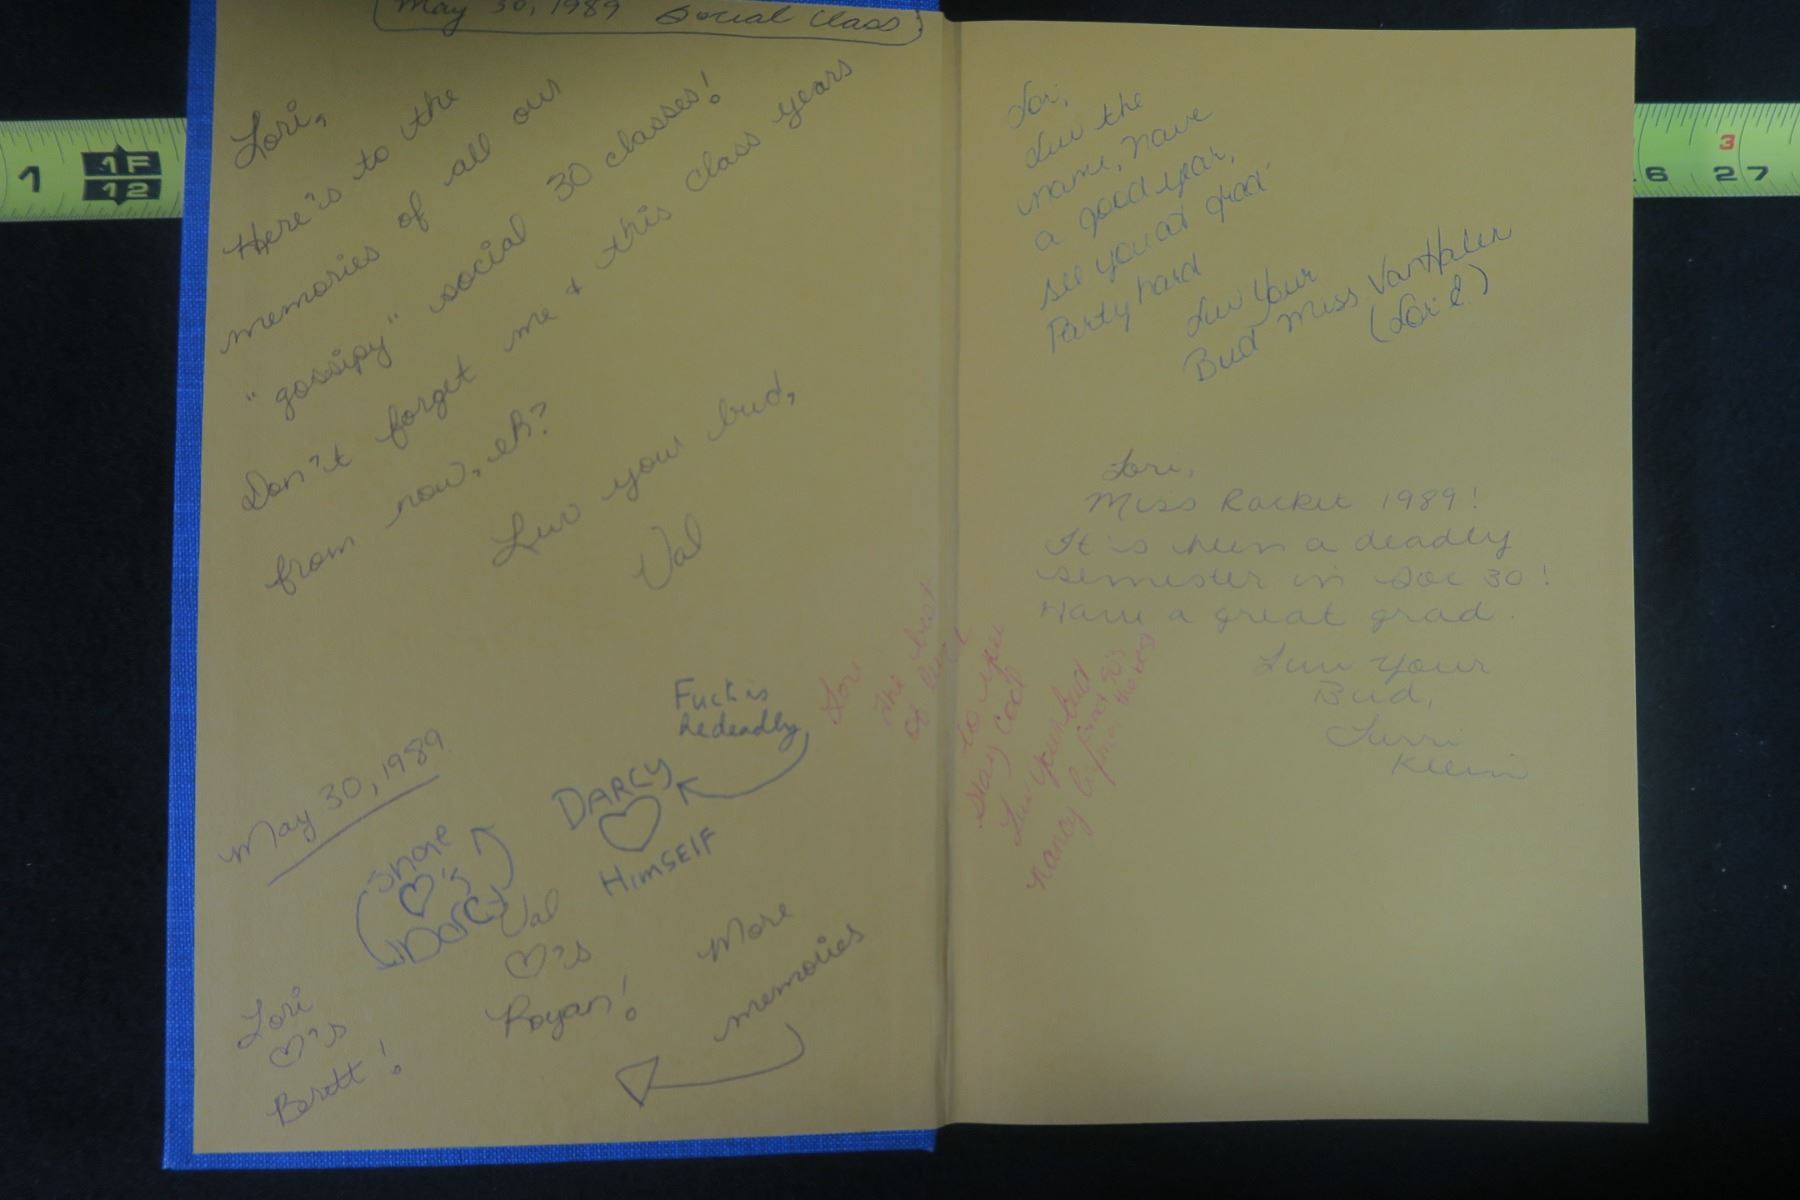 May 30, 1989 Social Class
Lori,
Here's to the
memories of all our
"gossipy" social 30 classes!
Don't forget me & this class years
from now, eh?
Luv your bud,
Val
Fuck is
he deadly
DARCY
♡
HIMSELF
May 30, 1989
♡'s
Darcy
Val
♡'s
Royan!
More
memories
Lori
♡'s
Barett!
Lori,
Luv the
name, have
a good year,
see you at grad
Party hard
Luv Your
Bud Miss VanHalen
(Lori L.)
Lori,
Miss Racket 1989!
It's been a deadly
semester in Soc 30!
Have a great grad.
Luv Your
Bud,
Terri
Klein
Lori
The best
of luck
to you
Stay cool
Luv Your bud
nancy
1
1F
12
6
27
3